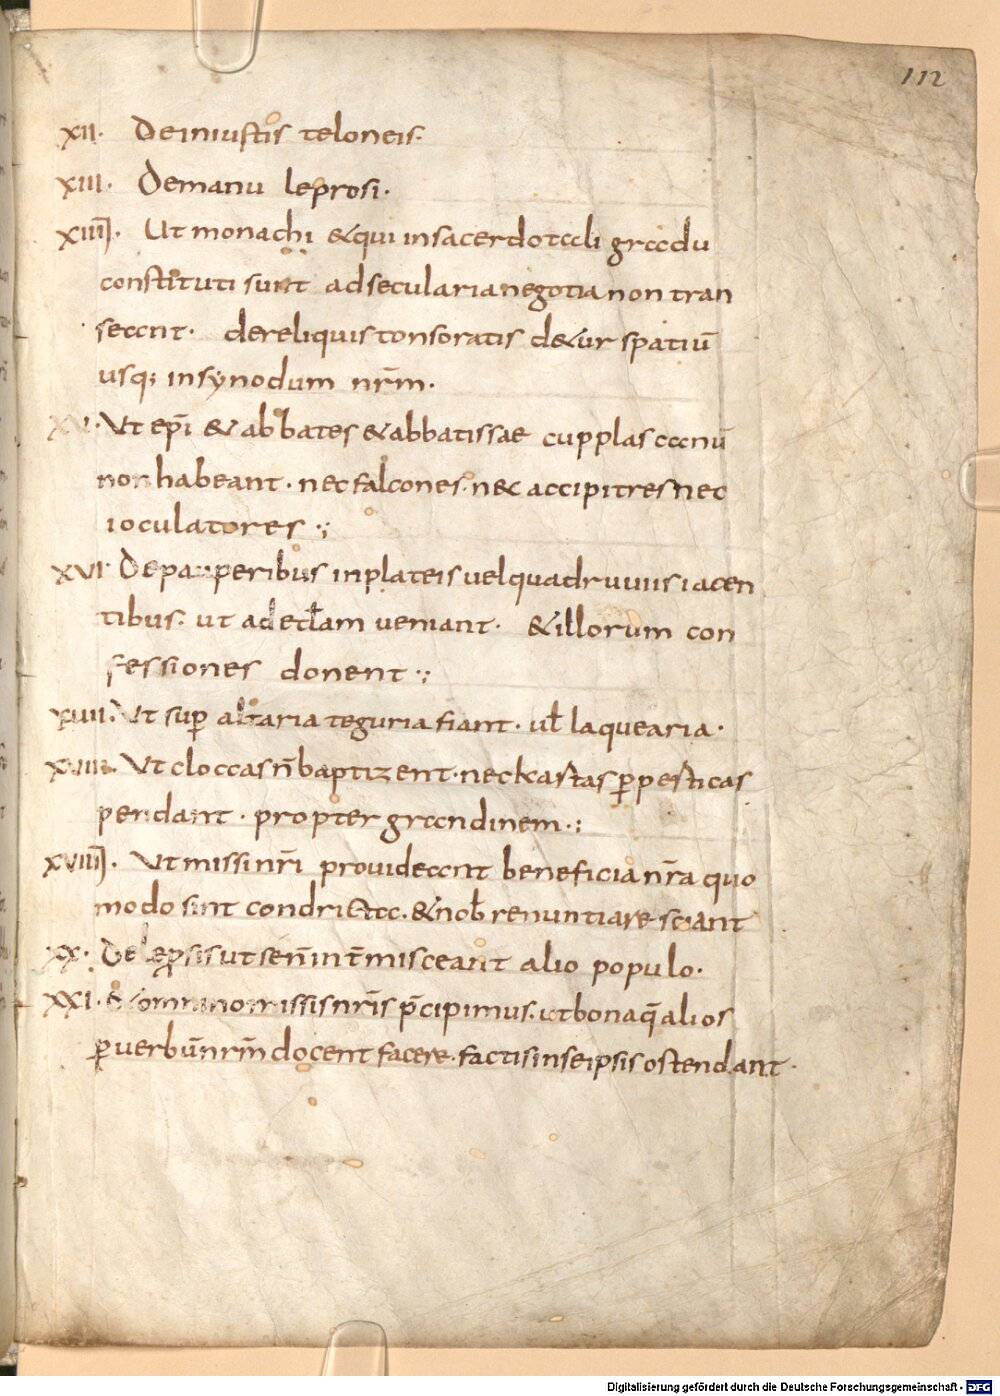 112
XII. De iniustis teloneis.
XIII. De manu leprosi.
XIIII. Ut monachi & qui in sacerdotali gradu
constituti sunt ad secularia negotia non tran
seant. de reliquis tonsoratis det̄ur spatiū
usq; in synodum nr̄m.
XV. Ut ep̄i & abbates & abbatissae cupplas canū
non habeant. nec falcones. nec accipitres nec
ioculatores.;
XVI. De pauperibus in plateis uel quadruuiis iacen
tibus. ut ad eccl̄am ueniant. & illorum con
fessiones donent.;
XVII. Ut sup̄ altaria teguria fiant. ul̄ laquearia.
XVIII. Ut cloccas n̄ baptizent. nec kartas p̱ perticas
pendant. propter grandinem.;
XVIIII. Ut missi nr̄i prouideant beneficia nr̄a quo
modo sint condricta. & nob̄ renuntiare sciant
XX. De lep̱rosis ut se n̄ int̄misceant alio populo.
XXI. & omnino missis nr̄is p̄cipimus. ut bona q̄ alios
p̱ uerbū nr̄m docent facere. factis in se ipsis ostendant.
Digitalisierung gefördert durch die Deutsche Forschungsgemeinschaft - DFG